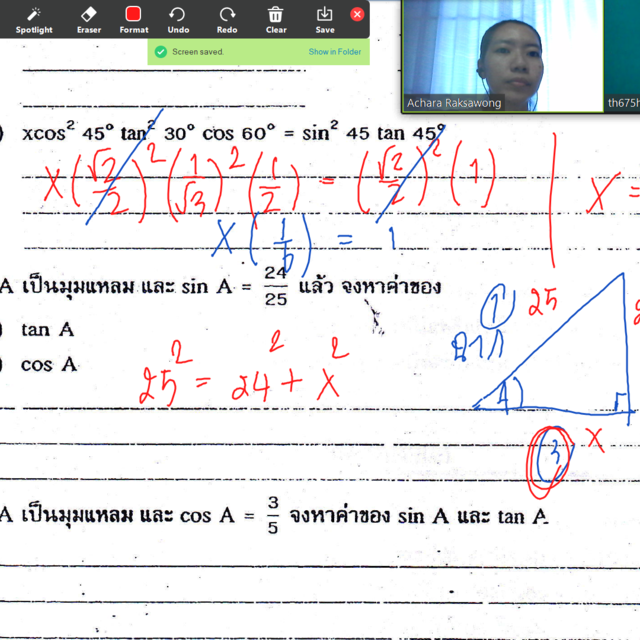 Spotlight Eraser Format Undo Redo Clear Save
Screen saved. Show in Folder
Achara Raksawong
th675h
) xcos² 45° tan² 30° cos 60° = sin² 45 tan 45°
x(√2/2)²(1/√3)²(1/2) = (√2/2)²(1)
x =
x(1/6) = 1
A เป็นมุมแหลม และ sin A = 24/25 แล้ว จงหาค่าของ
) tan A
) cos A
25² = 24² + x²
1 25
ฉาก
A
3 x
A เป็นมุมแหลม และ cos A = 3/5 จงหาค่าของ sin A และ tan A